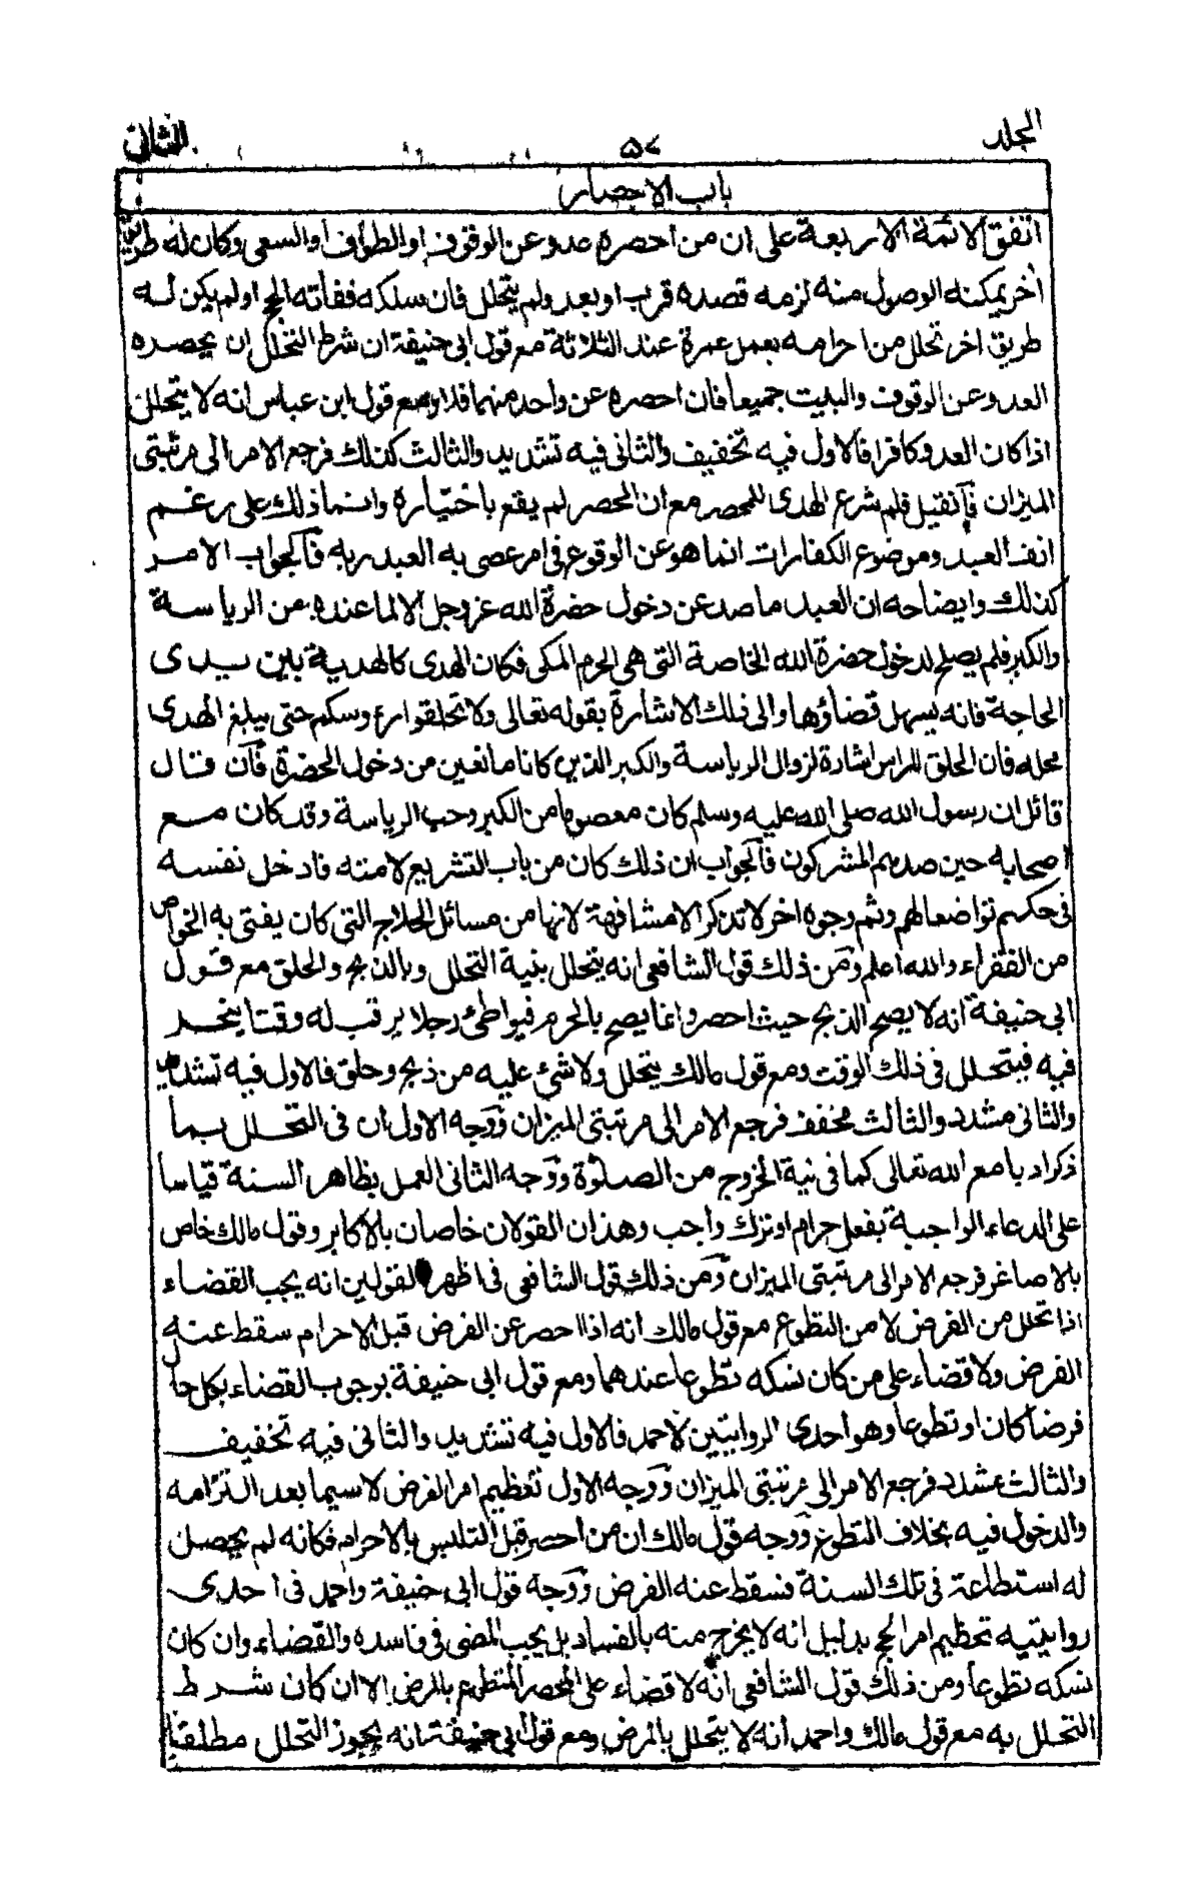 المجلد ٥٧ الثانى
باب الاحصار
اتفق الائمة الاربعة على ان من احصره عدو عن الوقوف او الطواف او السعى وكان له طريق
اخر يمكنه الوصول منه لزمه قصده قرب او بعد ولم يتحلل فان سلكه ففاته الحج او لم يكن له
طريق اخر تحلل من احرامه بعمل عمرة عند الثلاثة مع قول ابى حنيفة ان شرط التحلل ان يحصره
العدو عن الوقوف والبيت جميعا فان احصره عن واحد منهما فلا ومع قول ابن عباس انه لا يتحلل
اذا كان العدو كافرا فالاول فيه تخفيف والثانى فيه تشديد والثالث كذلك فرجع الامر الى مرتبتى
الميزان فان قيل فلم شرع الهدى للمحصر مع ان الحصر لم يقع باختياره وانما ذلك على رغم
انف العبد وموضوع الكفارات انما هو عن الوقوع فى امر عصى به العبد ربه فالجواب الامر
كذلك وايضاحه ان العبد ما صد عن دخول حضرة الله عز وجل الا لما عنده من الرياسة
والكبر فلم يصلح لدخول حضرة الله الخاصة التى هى الحرم المكى فكان الهدى كالهدية بين يدى
الحاجة فانه يسهل قضاؤها والى ذلك الاشارة بقوله تعالى ولا تحلقوا رءوسكم حتى يبلغ الهدى
محله فان الحلق للراس اشارة لزوال الرياسة والكبر الذين كانا مانعين من دخول الحضرة فان قال
قائل ان رسول الله صلى الله عليه وسلم كان معصوما من الكبر وحب الرياسة وقد كان مع
اصحابه حين صدهم المشركون فالجواب ان ذلك كان من باب التشريع لامته فادخل نفسه
فى حكمهم تواضعا لهم وثم وجوه اخر لا تذكر الا مشافهة لانها من مسائل الحلاج التى كان يفتى به الخواص
من الفقراء والله اعلم ومن ذلك قول الشافعى انه يتحلل بنية التحلل وبالذبح والحلق مع قول
ابى حنيفة انه لا يصح الذبح حيث احصر وانما يصح بالحرم فيواطئ رجلا يرقب له وقتا ينحر
فيه فيتحلل فى ذلك الوقت ومع قول مالك يتحلل ولا شئ عليه من ذبح وحلق فالاول فيه تشديد
والثانى مشدد والثالث مخفف فرجع الامر الى مرتبتى الميزان ووجه الاول ان فى التحلل بما
ذكر ادبا مع الله تعالى كما فى نية الخروج من الصلوة ووجه الثانى العمل بظاهر السنة قياسا
على الدعاء الواجبة بفعل حرام او ترك واجب وهذان القولان خاصان بالاكابر وقول مالك خاص
بالاصاغر فرجع الامر الى مرتبتى الميزان ومن ذلك قول الشافعى فى اظهر القولين انه يجب القضاء
اذا تحلل من الفرض لا من التطوع مع قول مالك انه اذا احصر عن الفرض قبل الاحرام سقط عنه
الفرض ولا قضاء على من كان نسكه تطوعا عندهما ومع قول ابى حنيفة بوجوب القضاء بكل حال
فرضا كان او تطوعا وهو احدى الروايتين لاحمد فالاول فيه تشديد والثانى فيه تخفيف
والثالث مشدد فرجع الامر الى مرتبتى الميزان ووجه الاول تعظيم امر الفرض لا سيما بعد التزامه
والدخول فيه بخلاف التطوع ووجه قول مالك ان من احصر قبل التلبس بالاحرام فكانه لم يحصل
له استطاعة فى تلك السنة فسقط عنه الفرض ووجه قول ابى حنيفة واحمد فى احدى
روايتيه تعظيم امر الحج بدليل انه لا يخرج منه بالفساد بل يجب المضى فى فاسده والقضاء وان كان
نسكه تطوعا ومن ذلك قول الشافعى انه لا قضاء على المحصر المتطوع بالمرض الا ان كان شرط
التحلل به مع قول مالك واحمد انه لا يتحلل بالمرض ومع قول ابى حنيفة انه يجوز التحلل مطلقا